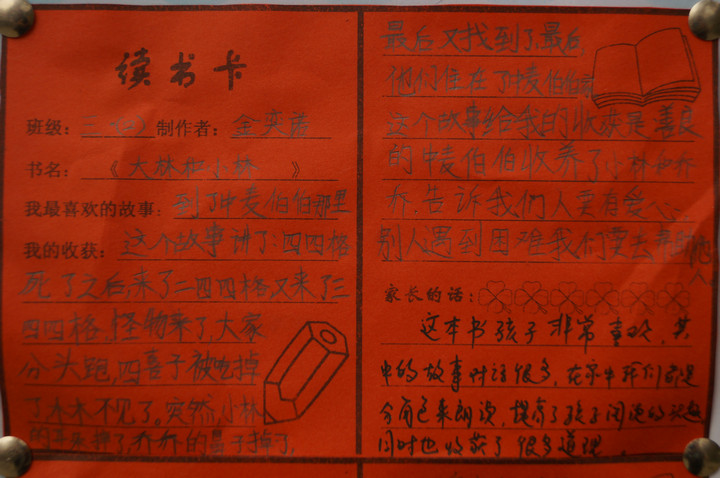 读书卡
班级：三（二）制作者：金奕诺
书名：《大林和小林》
我最喜欢的故事：到了中麦伯伯那里
我的收获：这个故事讲了：四四格
死了之后，来了二四四格，又来了三
四四格，怪物来了，大家
分头跑，四喜子被吃掉
了木木不见了。突然，小林
的耳朵掉了，乔乔的鼻子掉了，
最后又找到了，最后，
他们住在了中麦伯伯家
这个故事给我的收获是善良
的中麦伯伯收养了小林和乔
乔，告诉我们人要有爱心，
别人遇到困难我们要去帮助他人
家长的话：
这本书孩子非常喜欢，其
中的故事对话很多，在家中我们都是
分角色来朗读，提高了孩子阅读的兴趣
同时也收获了很多道理。